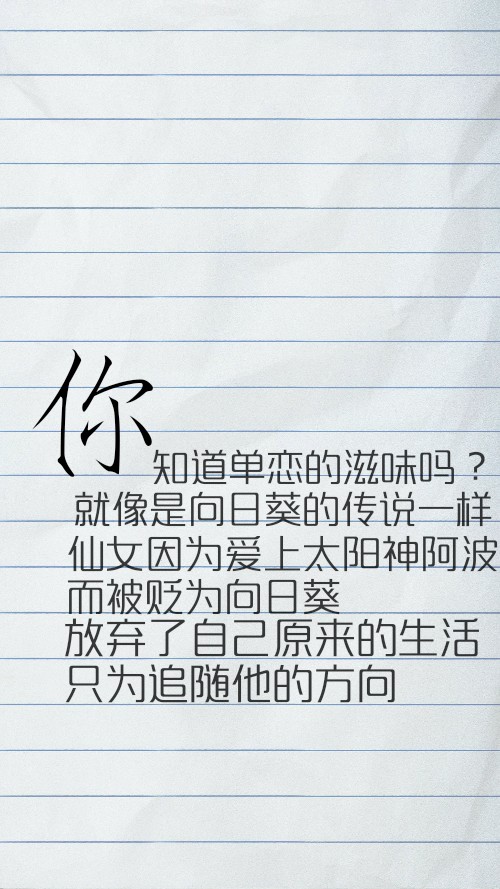 你
知道单恋的滋味吗？
就像是向日葵的传说一样
仙女因为爱上太阳神阿波
而被贬为向日葵
放弃了自己原来的生活
只为追随他的方向